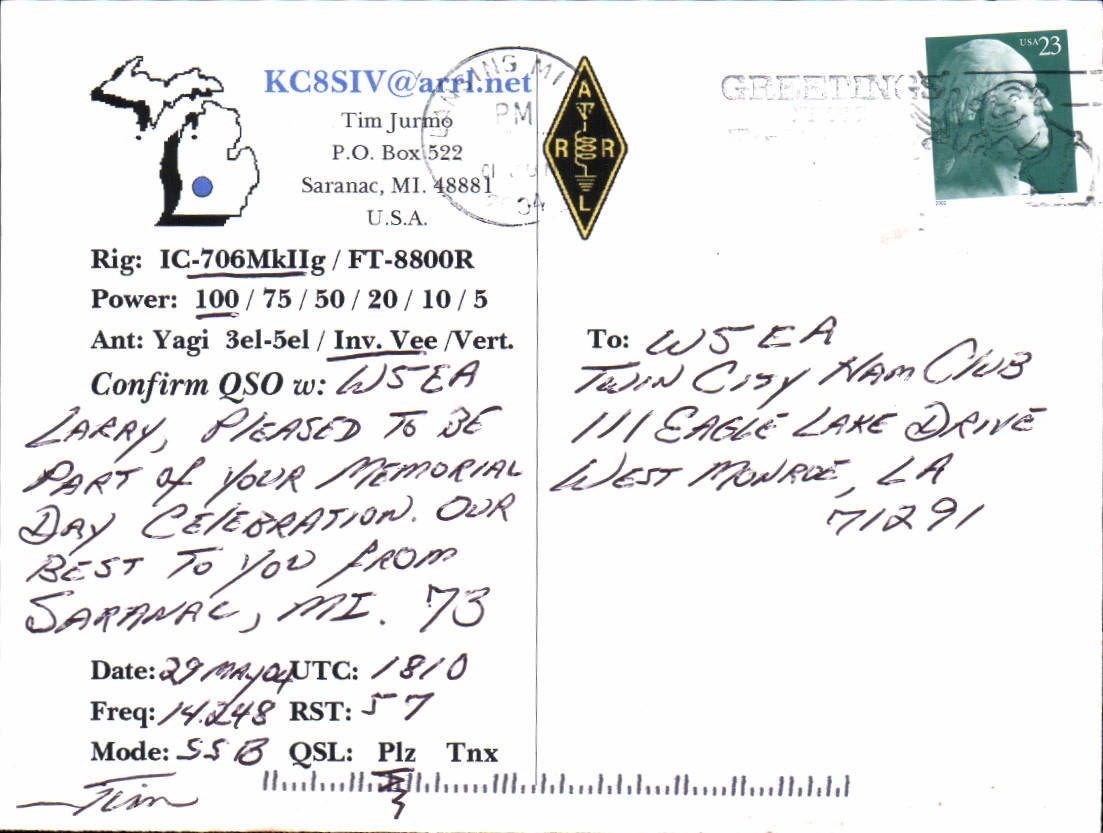 KC8SIV@arrl.net
Tim Jurmo
P.O. Box 522
Saranac, MI. 48881
U.S.A.
LANSING MI
PM
2004
A
R R
L
GREETINGS
USA 23
Rig: IC-706MkIIg / FT-8800R
Power: 100 / 75 / 50 / 20 / 10 / 5
Ant: Yagi 3el-5el / Inv. Vee /Vert.
Confirm QSO w: W5EA
LARRY, PLEASED TO BE
PART of YOUR MEMORIAL
DAY CELEBRATION. OUR
BEST TO YOU FROM
SARANAC, MI. 73
Date: 29 MAY 04 UTC: 1810
Freq: 14.248 RST: 57
Mode: SSB QSL: Plz Tnx
Tim
To: W5EA
TWIN CITY HAM CLUB
111 EAGLE LAKE DRIVE
WEST MONROE, LA
71291